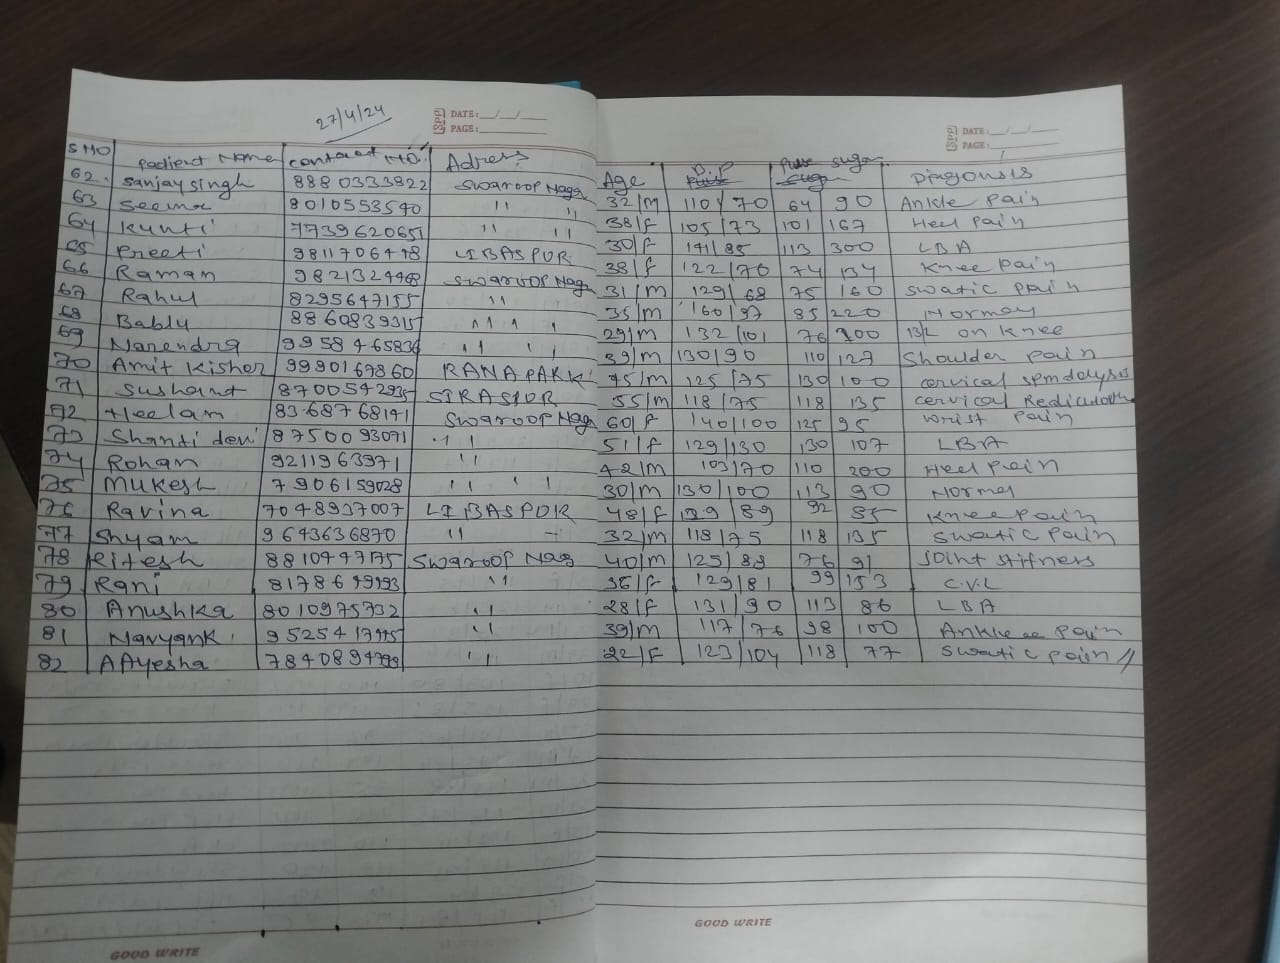 27/4/24
DATE: __/__/__
PAGE:
S NO Padient Name contact NO. Adress
62. Sanjay singh 8880333922 Swaroop Naga
63 Seema 8010553540 " "
64 Kunti 7739620651 " "
65 Preeti 9811706478 LIBASPUR
66 Raman 9821324468 Swaroop Naga
67 Rahul 8295647155 "
68 Bablu 8860839315 " "
69 Narendra 9958465836 " "
70 Amit Kishor 9990167860 RANA PARK
71 Sushant 8700542935 SIRASPUR
72 Neelam 8368768141 Swaroop Nag
73 Shanti devi 8750093071 "
74 Rohan 9211963971 "
75 Mukesh 7906159028 " "
76 Ravina 7048937007 LIBASPUR
77 Shyam 9643636870 "
78 Ritesh 8810447175 Swaroop Nag
79 Rani "
80 Anushka 8010975732 "
81 "
82 AAyesha "
GOOD WRITE
SPP DATE: __/__/__
PAGE:
Age B.P Pulse sugar Diagonsis
32/M 110/70 64 90 Ankle Pain
38/f 105/73 101 167 Heel Pain
30/f 141/85 113 300 LBA
38/f 122/76 74 134 Knee Pain
31/M 129/68 75 160 swatic pain
35/M 160/97 85 220 Normal
29/M 132/101 76 on knee
39/M 130/90 110 127 Shoulder Pain
45/M 125/75 130 100 cervical spondolysis
55/M 118/75 118 135 cervical
60/f 140/100 125 95 wrist pain
51/f 129/130 130 107 LBA
42/M 103/70 110 200 Heel Pain
30/M 130/100 113 90 Normal
48/f 129/89 92 85 Knee Pain
32/M 118/75 118 135 Swatic Pain
40/M 125/88 76 91 Joint stiffness
36/f 129/81 99 153 C.V.L
28/f 131/90 113 86 LBA
39/M 117/76 98 100 Ankle Pain
22/F 123/104 118 77 Swatic Pain //
GOOD WRITE